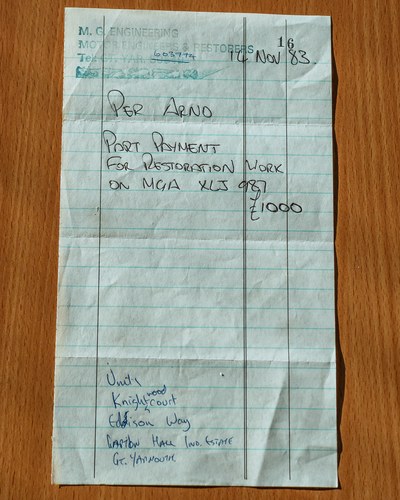 M. G. ENGINEERING
MOTOR & RESTORERS
603774
16
14 NOV 83.
PER ARNO
PART PAYMENT
FOR RESTORATION WORK
ON MGA XLJ 987
£1000
Unit
Knightwood court
Eddison Way
GAPTON HALL IND. ESTATE
GT. YARMOUTH.